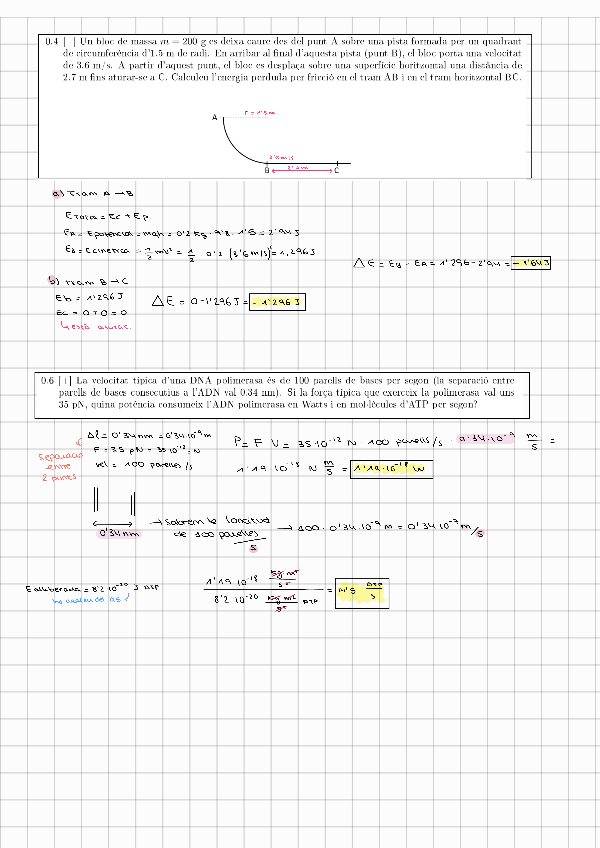 0.4 [ ] Un bloc de massa m = 200 g es deixa caure des del punt A sobre una pista formada per un quadrant
de circumferència d'1.5 m de radi. En arribar al final d'aquesta pista (punt B), el bloc porta una velocitat
de 3.6 m/s. A partir d'aquest punt, el bloc es desplaça sobre una superfície horitzontal una distància de
2.7 m fins aturar-se a C. Calculeu l'energia perduda per fricció en el tram AB i en el tram horitzontal BC.
A
r = 1'5m
B
C
a) Tram A → B
E TOTAL = Ec + Ep
EA = Epotencial = mgh = 0'2 kg · 9'8 · 1'5 = 2'94 J
EB = Ecinètica = 1/2 mv² = 1/2 · 0'2 (3'6 m/s)² = 1,296 J
ΔE = EB - EA = 1'296 - 2'94 = -1'64J
b) Tram B → C
Eb = 1'296 J
ΔE = 0 - 1'296 J = -1'296 J
Ec = 0 + 0 = 0
↳ està aturat.
0.6 [ ] La velocitat típica d'una DNA polimerasa és de 100 parells de bases per segon (la separació entre
parells de bases consecutius a l'ADN val 0.34 nm). Si la força típica que exerceix la polimerasa val uns
35 pN, quina potència consumeix l'ADN polimerasa en Watts i en mol·lècules d'ATP per segon?
Δl = 0'34 nm = 0'34·10⁻⁹ m
F = 35 pN = 35·10⁻¹² N
vel = 100 parells/s
separació
entre
2 punts
P = F V = 35·10⁻¹² N 100 parells/s · 0'34·10⁻⁹ m/s =
1'19·10⁻¹⁸ N m/s = 1'19·10⁻¹⁸ W
0'34 nm
→ Sabrem la longitud
de 100 parells/s
→ 100 · 0'34·10⁻⁹ m = 0'34·10⁻⁷ m/s
E alliberada = 8'2·10⁻²⁰ J ATP
1'19·10⁻¹⁸ kg m²/s³ / 8'2·10⁻²⁰ kg m²/s² ATP = 14'5 ATP/s